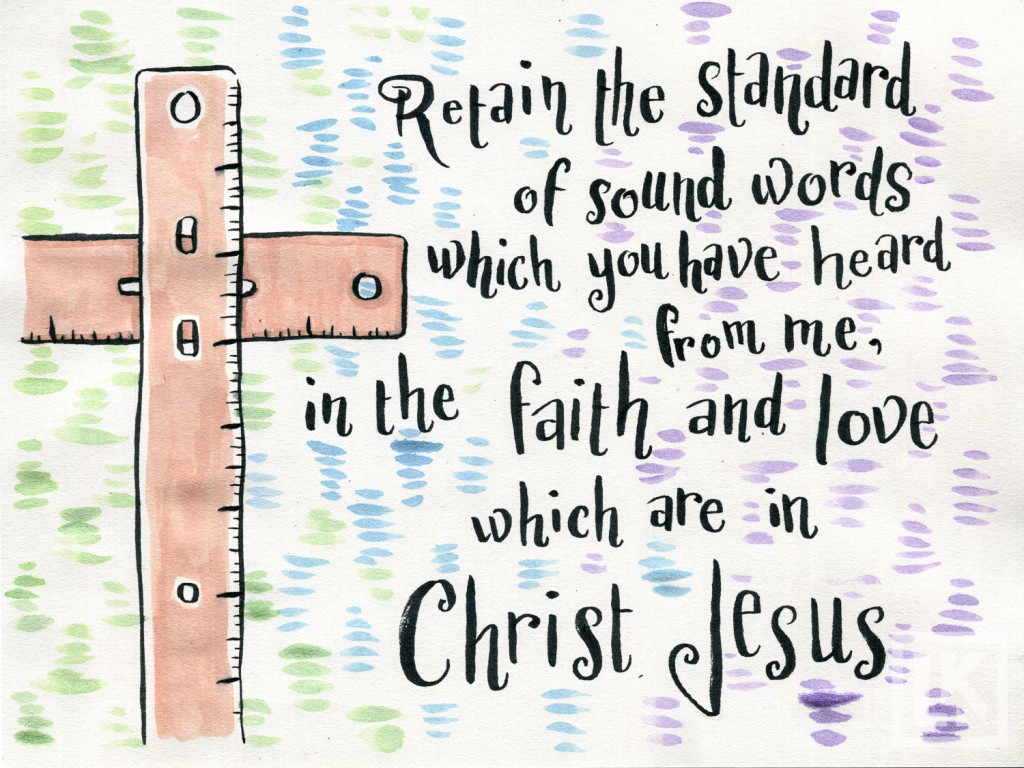 Retain the standard
of sound words
which you have heard
from me,
in the faith and love
which are in
Christ Jesus
LK